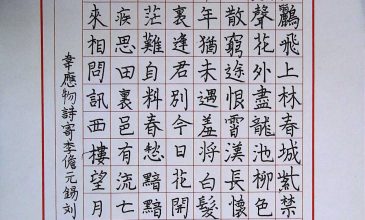 鸝飛上林春城紫禁
聲花外盡龍池柳色
散窮途恨霄漢長懷
年猶未遇羞將白髮
裏逢君別今日花開
茫難自料春愁黯黯
疾思田裏邑有流亡
來相問訊西樓望月
韋應物詩寄李儋元錫刘